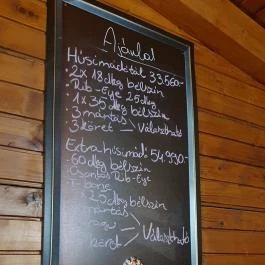 Ajánlat
Húsimádótál 33.560.-
• 2x 18dkg bélszín
• Rib-Eye 25dkg
• 1x 35 dkg bélszín
• 3 mártás
• 3 köret > Választható
Extra húsimádó: 54.930.-
• 60dkg bélszín
Csontos Rib-Eye
T-bone
25dkg bélszín
mártás
köret > Választható